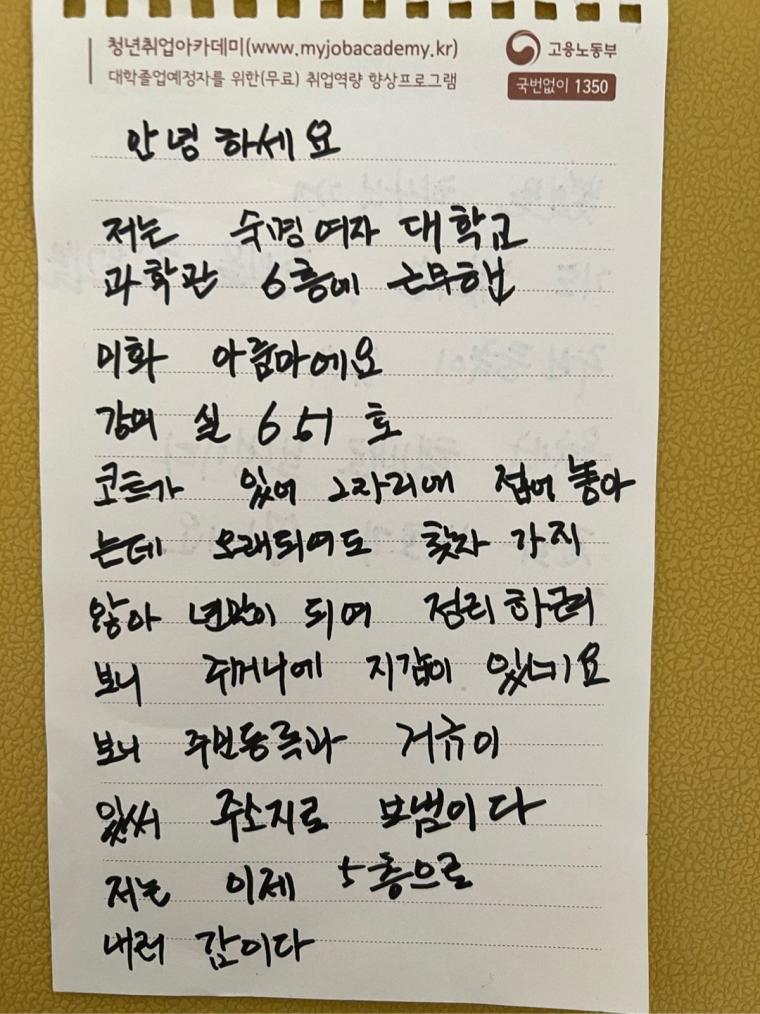 청년취업아카데미(www.myjobacademy.kr)
대학졸업예정자를 위한(무료) 취업역량 향상프로그램
고용노동부
국번없이 1350
안녕하세요
저는 숙명여자 대학교
과학관 6층에 근무햅
미화 아줌마에요
강의 실 651 호
코트가 있어 그자리에 접어 놓아
는데 오래되여도 찾자 가지
않아 년말이 되여 정리하근
보니 주머니에 지갑이 있네요
보니 주민등록과 거슈이
있써 주소지로 보냄이다
저는 이제 5층으로
내려 갑이다